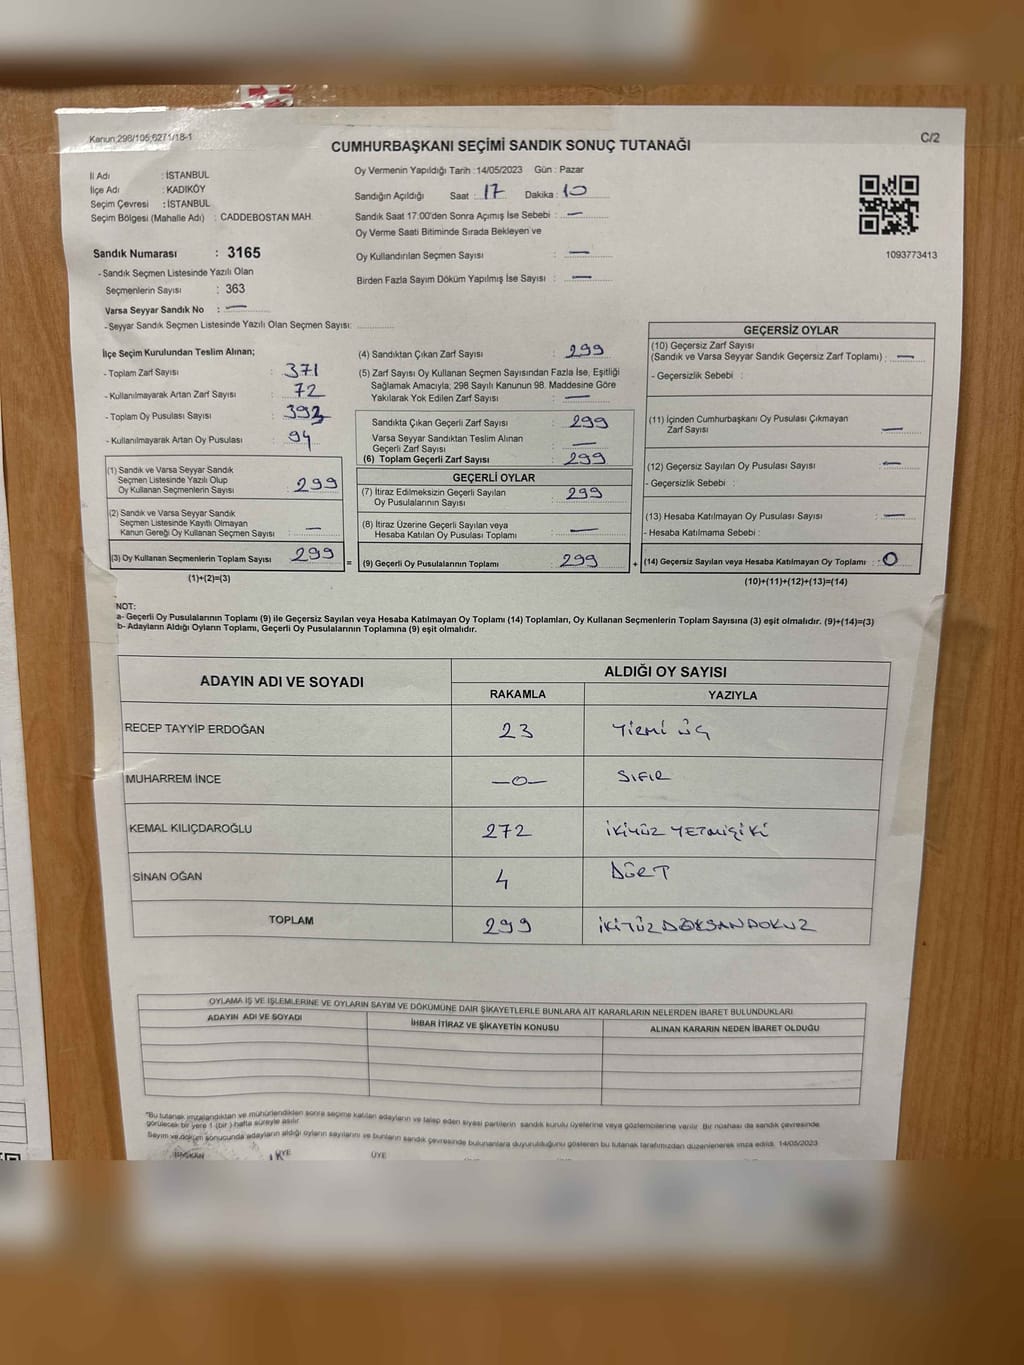 Kanun:298/105;6271/18-1
C/2
CUMHURBAŞKANI SEÇİMİ SANDIK SONUÇ TUTANAĞI
İl Adı : İSTANBUL
İlçe Adı : KADIKÖY
Seçim Çevresi : İSTANBUL
Seçim Bölgesi (Mahalle Adı) : CADDEBOSTAN MAH.
Sandık Numarası : 3165
- Sandık Seçmen Listesinde Yazılı Olan
Seçmenlerin Sayısı : 363
Varsa Seyyar Sandık No : —
- Seyyar Sandık Seçmen Listesinde Yazılı Olan Seçmen Sayısı: ............
Oy Vermenin Yapıldığı Tarih : 14/05/2023 Gün : Pazar
Sandığın Açıldığı Saat : 17 Dakika : 10
Sandık Saat 17:00'den Sonra Açımış İse Sebebi : —
Oy Verme Saati Bitiminde Sırada Bekleyen ve
Oy Kullandırılan Seçmen Sayısı : —
Birden Fazla Sayım Döküm Yapılmış İse Sayısı : —
1093773413
İlçe Seçim Kurulundan Teslim Alınan;
- Toplam Zarf Sayısı : 371
- Kullanılmayarak Artan Zarf Sayısı : 72
- Toplam Oy Pusulası Sayısı : 393
- Kullanılmayarak Artan Oy Pusulası : 94
(1) Sandık ve Varsa Seyyar Sandık
Seçmen Listesinde Yazılı Olup
Oy Kullanan Seçmenlerin Sayısı : 299
(2) Sandık ve Varsa Seyyar Sandık
Seçmen Listesinde Kayıtlı Olmayan
Kanun Gereği Oy Kullanan Seçmen Sayısı : —
(3) Oy Kullanan Seçmenlerin Toplam Sayısı 299
(1)+(2)=(3)
(4) Sandıktan Çıkan Zarf Sayısı : 299
(5) Zarf Sayısı Oy Kullanan Seçmen Sayısından Fazla İse, Eşitliği
Sağlamak Amacıyla, 298 Sayılı Kanunun 98. Maddesine Göre
Yakılarak Yok Edilen Zarf Sayısı : —
Sandıkta Çıkan Geçerli Zarf Sayısı : 299
Varsa Seyyar Sandıktan Teslim Alınan
Geçerli Zarf Sayısı : —
(6) Toplam Geçerli Zarf Sayısı : 299
GEÇERLİ OYLAR
(7) İtiraz Edilmeksizin Geçerli Sayılan
Oy Pusulalarının Sayısı : 299
(8) İtiraz Üzerine Geçerli Sayılan veya
Hesaba Katılan Oy Pusulası Toplamı : —
= (9) Geçerli Oy Pusulalarının Toplamı : 299 +
GEÇERSİZ OYLAR
(10) Geçersiz Zarf Sayısı
(Sandık ve Varsa Seyyar Sandık Geçersiz Zarf Toplamı) : —
- Geçersizlik Sebebi :
(11) İçinden Cumhurbaşkanı Oy Pusulası Çıkmayan
Zarf Sayısı : —
(12) Geçersiz Sayılan Oy Pusulası Sayısı : —
- Geçersizlik Sebebi :
(13) Hesaba Katılmayan Oy Pusulası Sayısı : —
- Hesaba Katılmama Sebebi :
(14) Geçersiz Sayılan veya Hesaba Katılmayan Oy Toplamı : 0
(10)+(11)+(12)+(13)=(14)
NOT:
a- Geçerli Oy Pusulalarının Toplamı (9) ile Geçersiz Sayılan veya Hesaba Katılmayan Oy Toplamı (14) Toplamları, Oy Kullanan Seçmenlerin Toplam Sayısına (3) eşit olmalıdır. (9)+(14)=(3)
b- Adayların Aldığı Oyların Toplamı, Geçerli Oy Pusulalarının Toplamına (9) eşit olmalıdır.
ADAYIN ADI VE SOYADI ALDIĞI OY SAYISI
RAKAMLA YAZIYLA
RECEP TAYYİP ERDOĞAN 23 Yirmi üç
MUHARREM İNCE —0— SIFIR
KEMAL KILIÇDAROĞLU 272 İKİYÜZ YETMİŞİKİ
SİNAN OĞAN 4 DÖRT
TOPLAM 299 İKİYÜZDOKSANDOKUZ
OYLAMA İŞ VE İŞLEMLERİNE VE OYLARIN SAYIM VE DÖKÜMÜNE DAİR ŞİKAYETLERLE BUNLARA AİT KARARLARIN NELERDEN İBARET BULUNDUKLARI
ADAYIN ADI VE SOYADI İHBAR İTİRAZ VE ŞİKAYETİN KONUSU ALINAN KARARIN NEDEN İBARET OLDUĞU
*Bu tutanak imzalandıktan ve mühürlendikten sonra seçime katılan adayların ve talep eden siyasi partilerin sandık kurulu üyelerine veya gözlemcilerine verilir. Bir nüshası da sandık çevresinde
görülecek bir yere 1 (bir) hafta süreyle asılır.
Sayım ve döküm sonucunda adayların aldığı oyların sayılarını ve bunların sandık çevresinde bulunanlara duyurulduğunu gösteren bu tutanak tarafımızdan düzenlenerek imza edildi. 14/05/2023
BAŞKAN ÜYE ÜYE